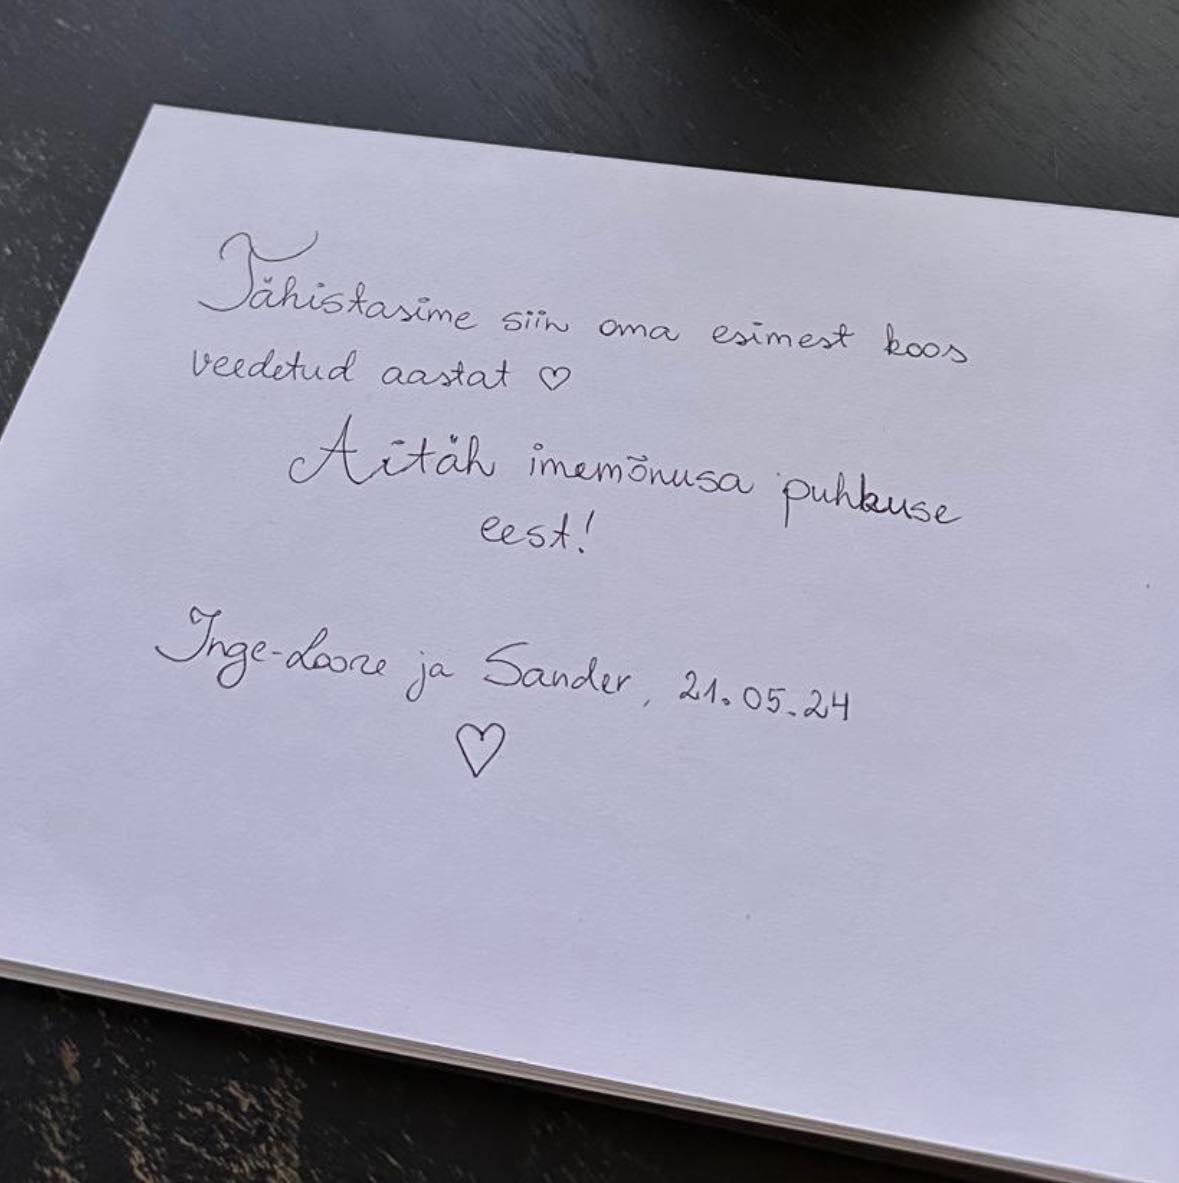 Tähistasime siin oma esimest koos
veedetud aastat ♡
Aitäh imemõnusa puhkuse
eest!
Inge-Loore ja Sander, 21.05.24
♡